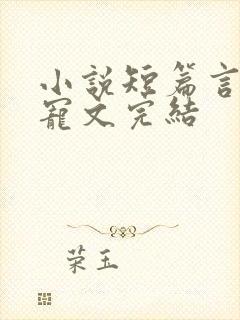 小說短篇言
寵文完結
荣玉